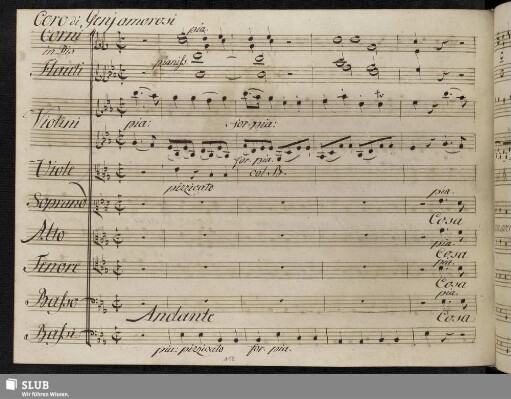 Coro di Genj amorosi
Corni pia.
in Dis
Flauti pianiss
Violini
pia: for. pia:
for. pia.
Viole col B.
pizzicato
Soprano pia.
Cosa
Alto pia.
Cosa
Tenore pia.
Cosa
Basso pia.
Andante Cosa
Bassi
pia: pizzicato for. pia.
SLUB
Wir führen Wissen.